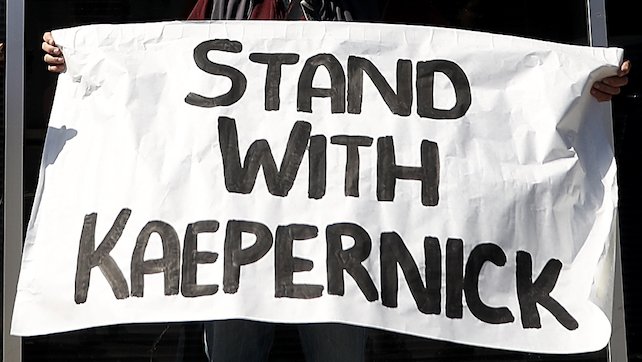 STAND
WITH
KAEPERNICK